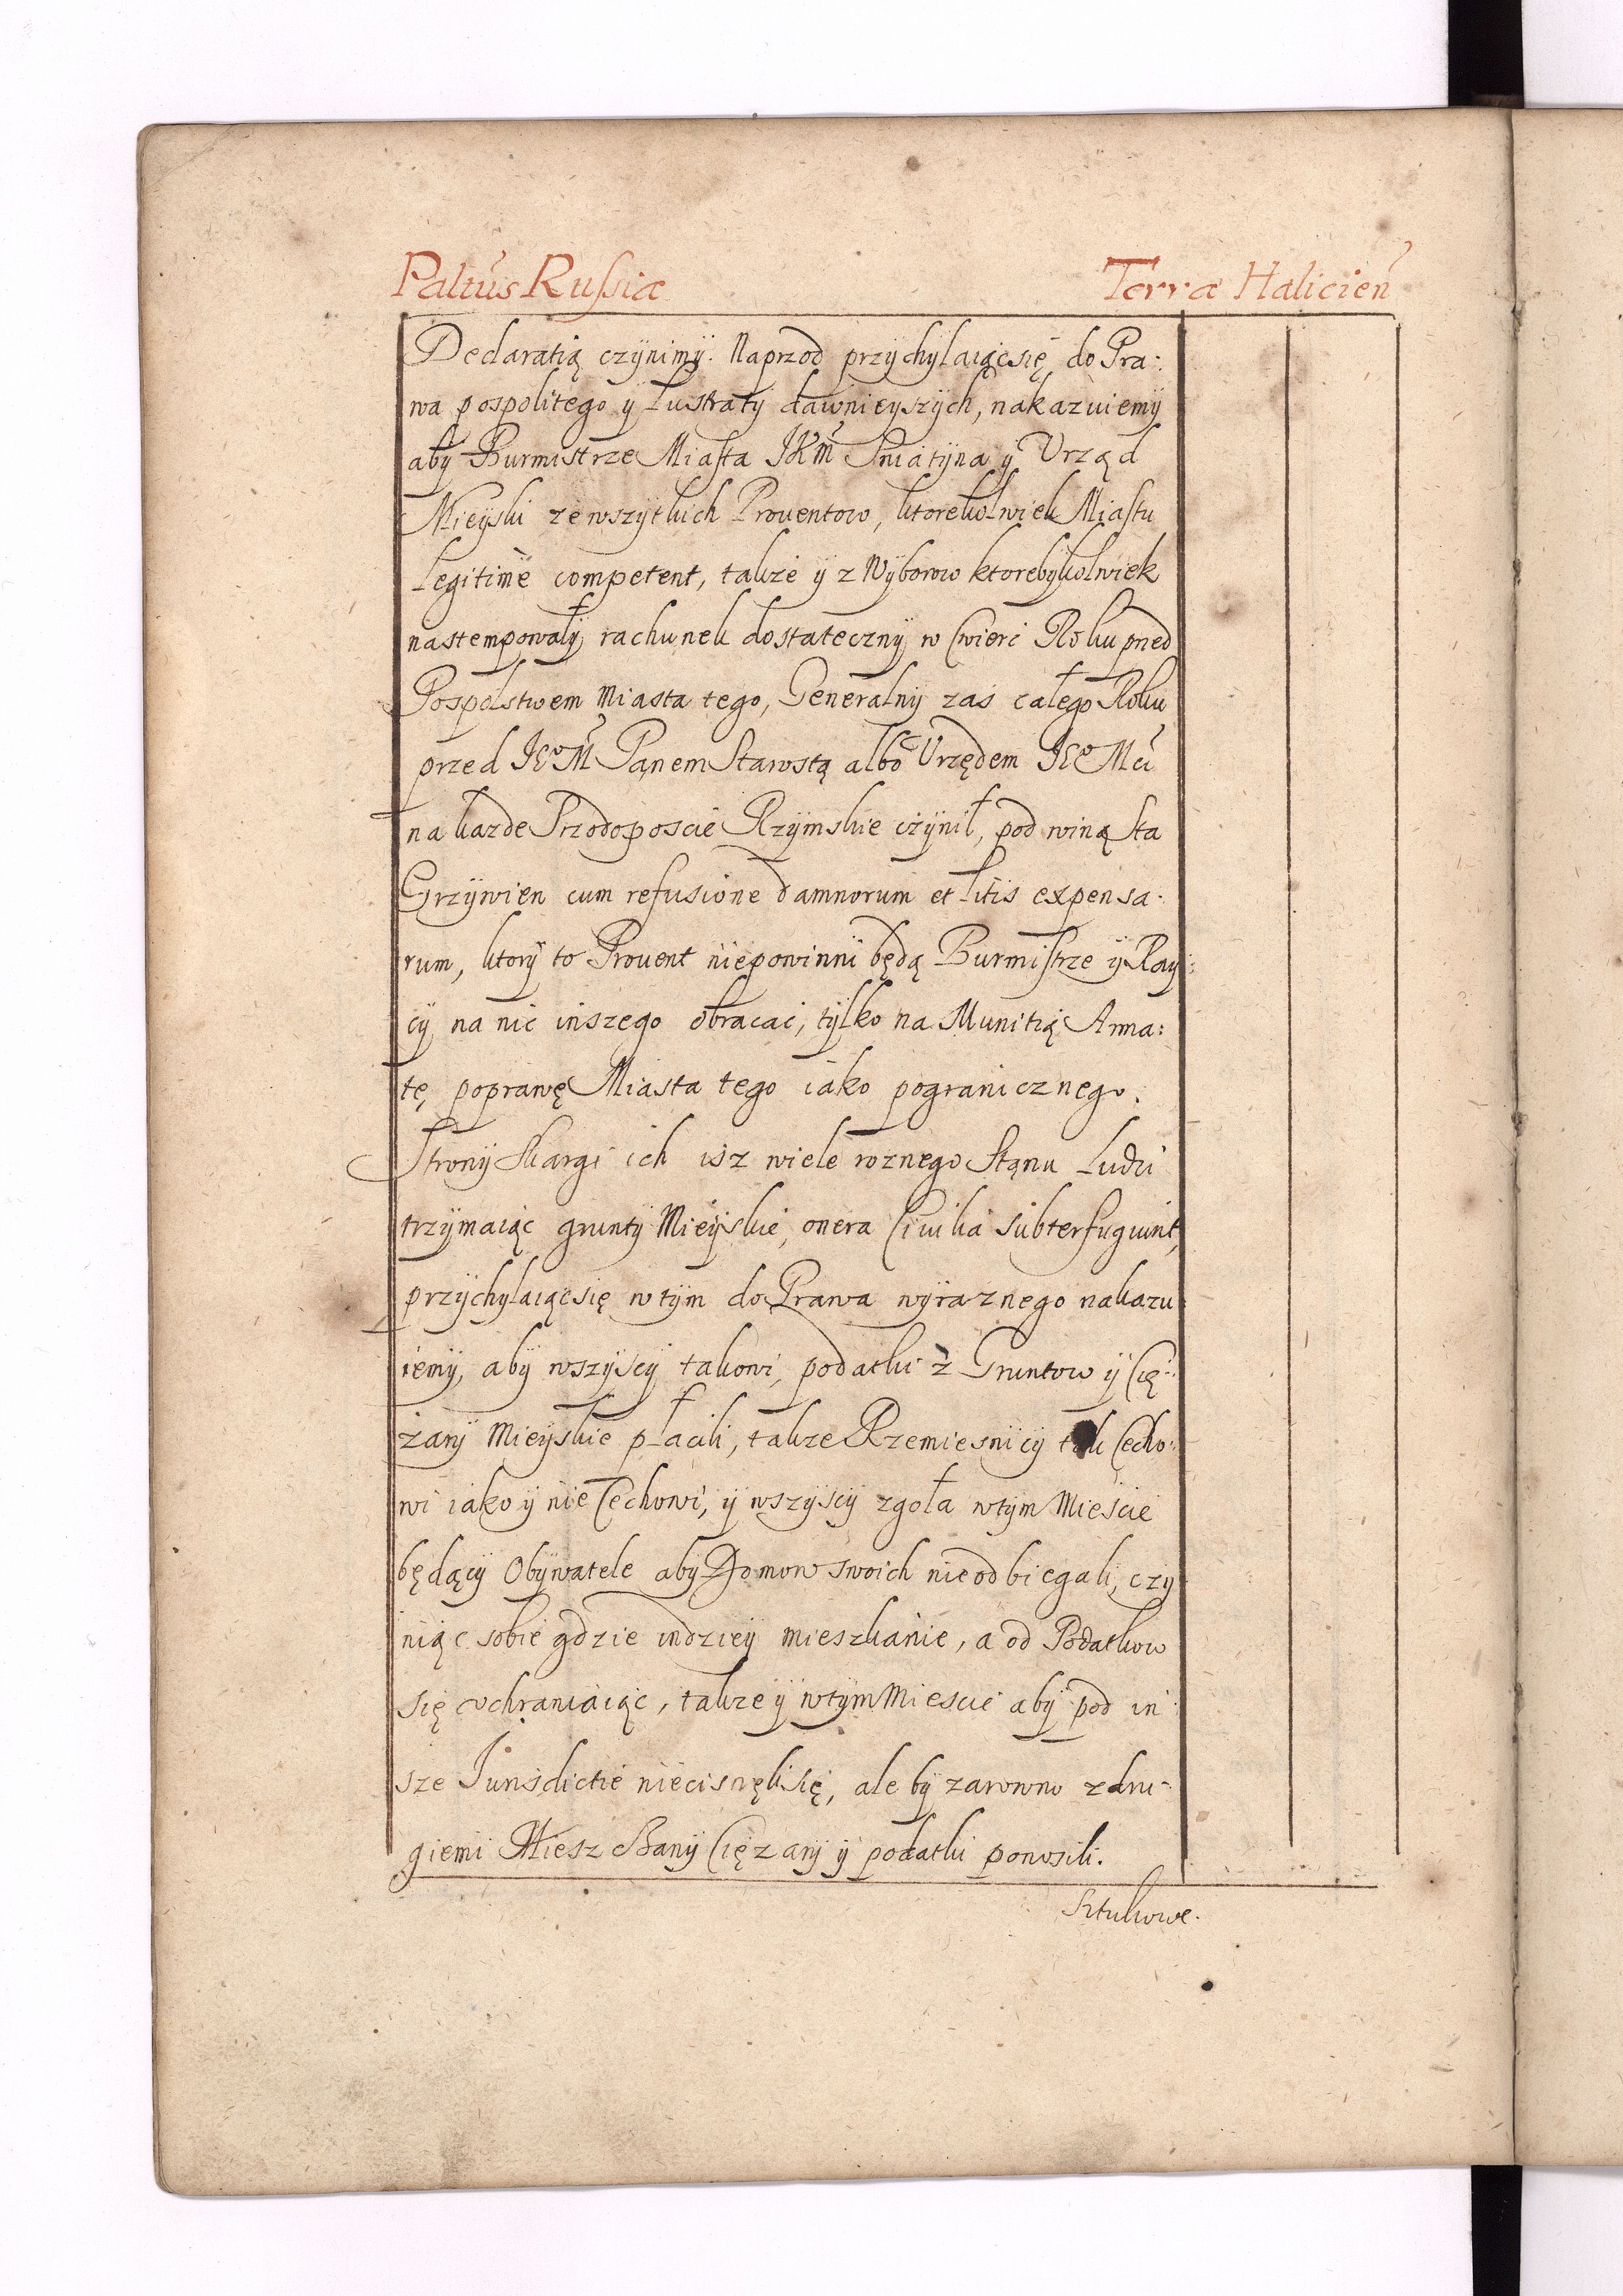 Paltus Russiæ Terræ Halicien
Declaratią czynimy. Naprzod przychylaiąc się do Pra:
wa pospolitego y Lustraty dawnieyszych, nakazuiemy
aby Burmistrze Miasta JKM Sniatyna y Urząd
Mieyski ze wszytkich Prouentow, ktorekolwiek Miastu
Legitime competent, takze y z Wyborow ktorebykolwiek
nastempowały rachunek dostateczny w Cwierc Roku pred
Pospolstwem Miasta tego, Generalny zas całego Roku
przed JEoM Panem Starostą albo Urzędem JEo Mci
na kazde Przodoposcie Rzymskie czynił, pod winą Sta
Grzywien cum refusione damnorum et Litis expensa:
rum, ktory to Prouent niepowinni będą Burmistrze y Ray:
cy na nic inszego obracac, tylko na Munitią Arma:
tę poprawę Miasta tego iako pogranicznego.
Strony Skargi ich isz wiele roznego Stanu Ludzi
trzymaiąc grunty Mieyskie, onera Ciuilia subterfugiunt,
przychylaiąc się w tym do Prawa wyraznego nakazu:
iemy, aby wszyscy takowi, podatki z Gruntow y Cię:
zary Mieyskie płacili, takze Rzemiesnicy tak Cecho:
wi iako y nie Cechowi, y wszyscy zgoła w tym Miescie
będący Obywatele aby Domow swoich nie odbiegali, czy
niąc sobie gdzie indziey mieszkanie, a od Podatkow
się ochraniaiąc, takze y w tym Miescie aby pod in
sze Jurisdictie niecisnęli się, ale by zarowno z dru:
giemi Mieszczany Cięzary y podatki ponosili.
Sztukowe.